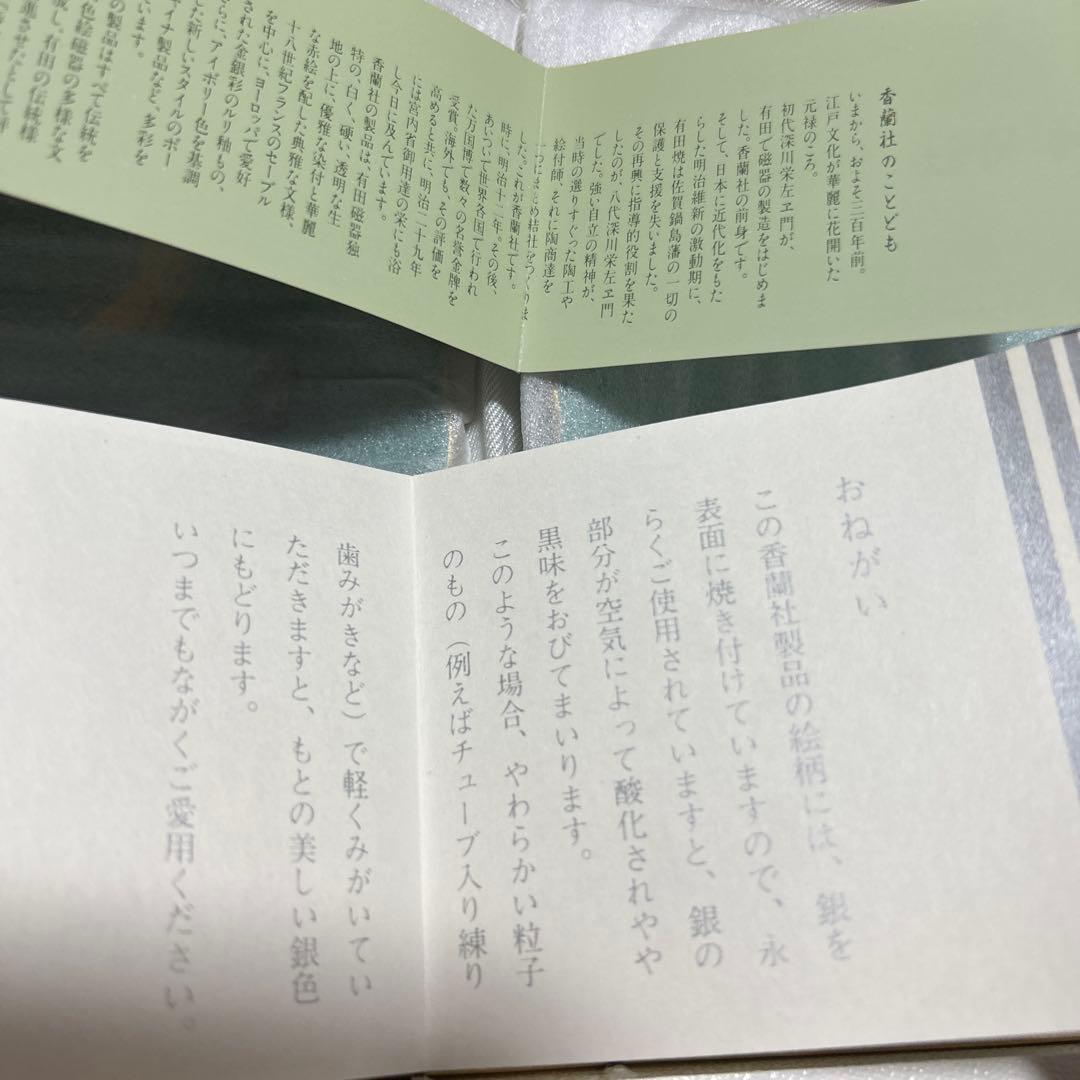 香蘭社のことども
いまから、およそ三百年前。
江戸文化が華麗に花開いた
元禄のころ。
初代深川栄左ヱ門が、
有田で磁器の製造をはじめま
した。香蘭社の前身です。
そして、日本に近代化をもた
らした明治維新の激動期に、
有田焼は佐賀鍋島藩の一切の
保護と支援を失いました。
その再興に指導的役割を果た
したのが、八代深川栄左ヱ門
でした。強い自立の精神が、
当時の選りすぐった陶工や
絵付師、それに陶商達を
一つにまとめ結社をつくりま
した。これが香蘭社です。
時に、明治十二年。その後、
あいついで世界各国で行われ
た万国博で数々の名誉金牌を
受賞。海外でも、その評価を
高めると共に、明治二十九年
には宮内省御用達の栄にも浴
し今日に及んでいます。
香蘭社の製品は、有田磁器独
特の、白く、硬い、透明な生
地の上に、優雅な染付と華麗
な赤絵を配した典雅な文様、
十八世紀フランスのセーブル
を中心に、ヨーロッパで愛好
された金銀彩のルリ釉もの、
さらに、アイボリー色を基調
した新しいスタイルのボー
イナ製品など、多彩を
います。
の製品はすべて伝統を
色絵磁器の多様な文
成し、有田の伝統様
進させたとして評
おねがい
この香蘭社製品の絵柄には、銀を
表面に焼き付けていますので、永
らくご使用されていますと、銀の
部分が空気によって酸化されやや
黒味をおびてまいります。
このような場合、やわらかい粒子
のもの（例えばチューブ入り練り
歯みがきなど）で軽くみがいてい
ただきますと、もとの美しい銀色
にもどります。
いつまでもながくご愛用ください。